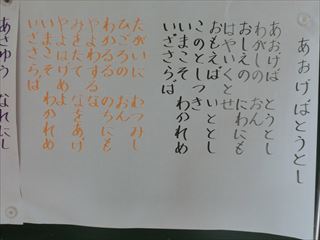 あおげばとうとし
あおげば とうとし
わがしの おん
おしえの にわにも
はやいくとせ
おもえば いととし
このとしつき
いまこそ わかれめ
いざさらば
たがいに むつみし
ひごろの おん
わかるる のちにも
やよわするな
みをたて なをあげ
やよはげめよ
いまこそ わかれめ
いざさらば
あさゆう なれにし